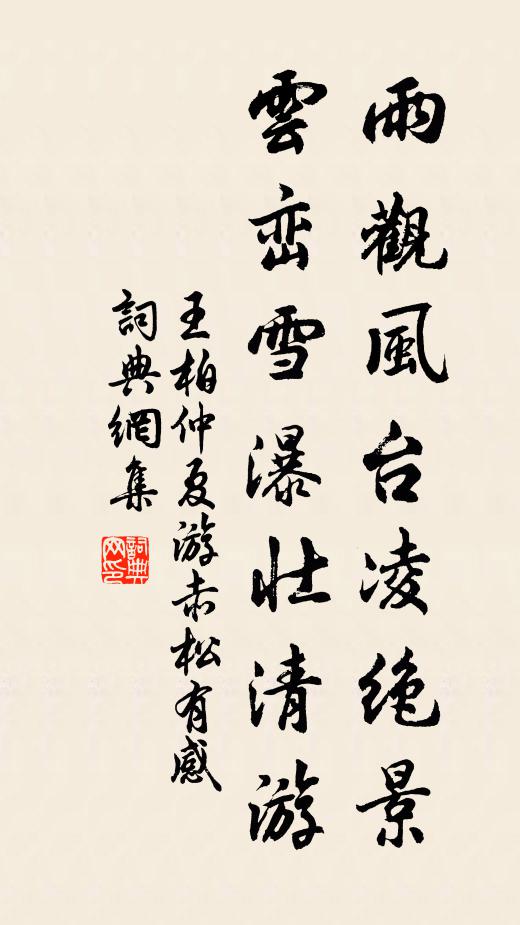 雨觀風台凌絶景
雲峦雪瀑壮清游
王柏仲夏游赤松有感
詞典網集
詞典网印